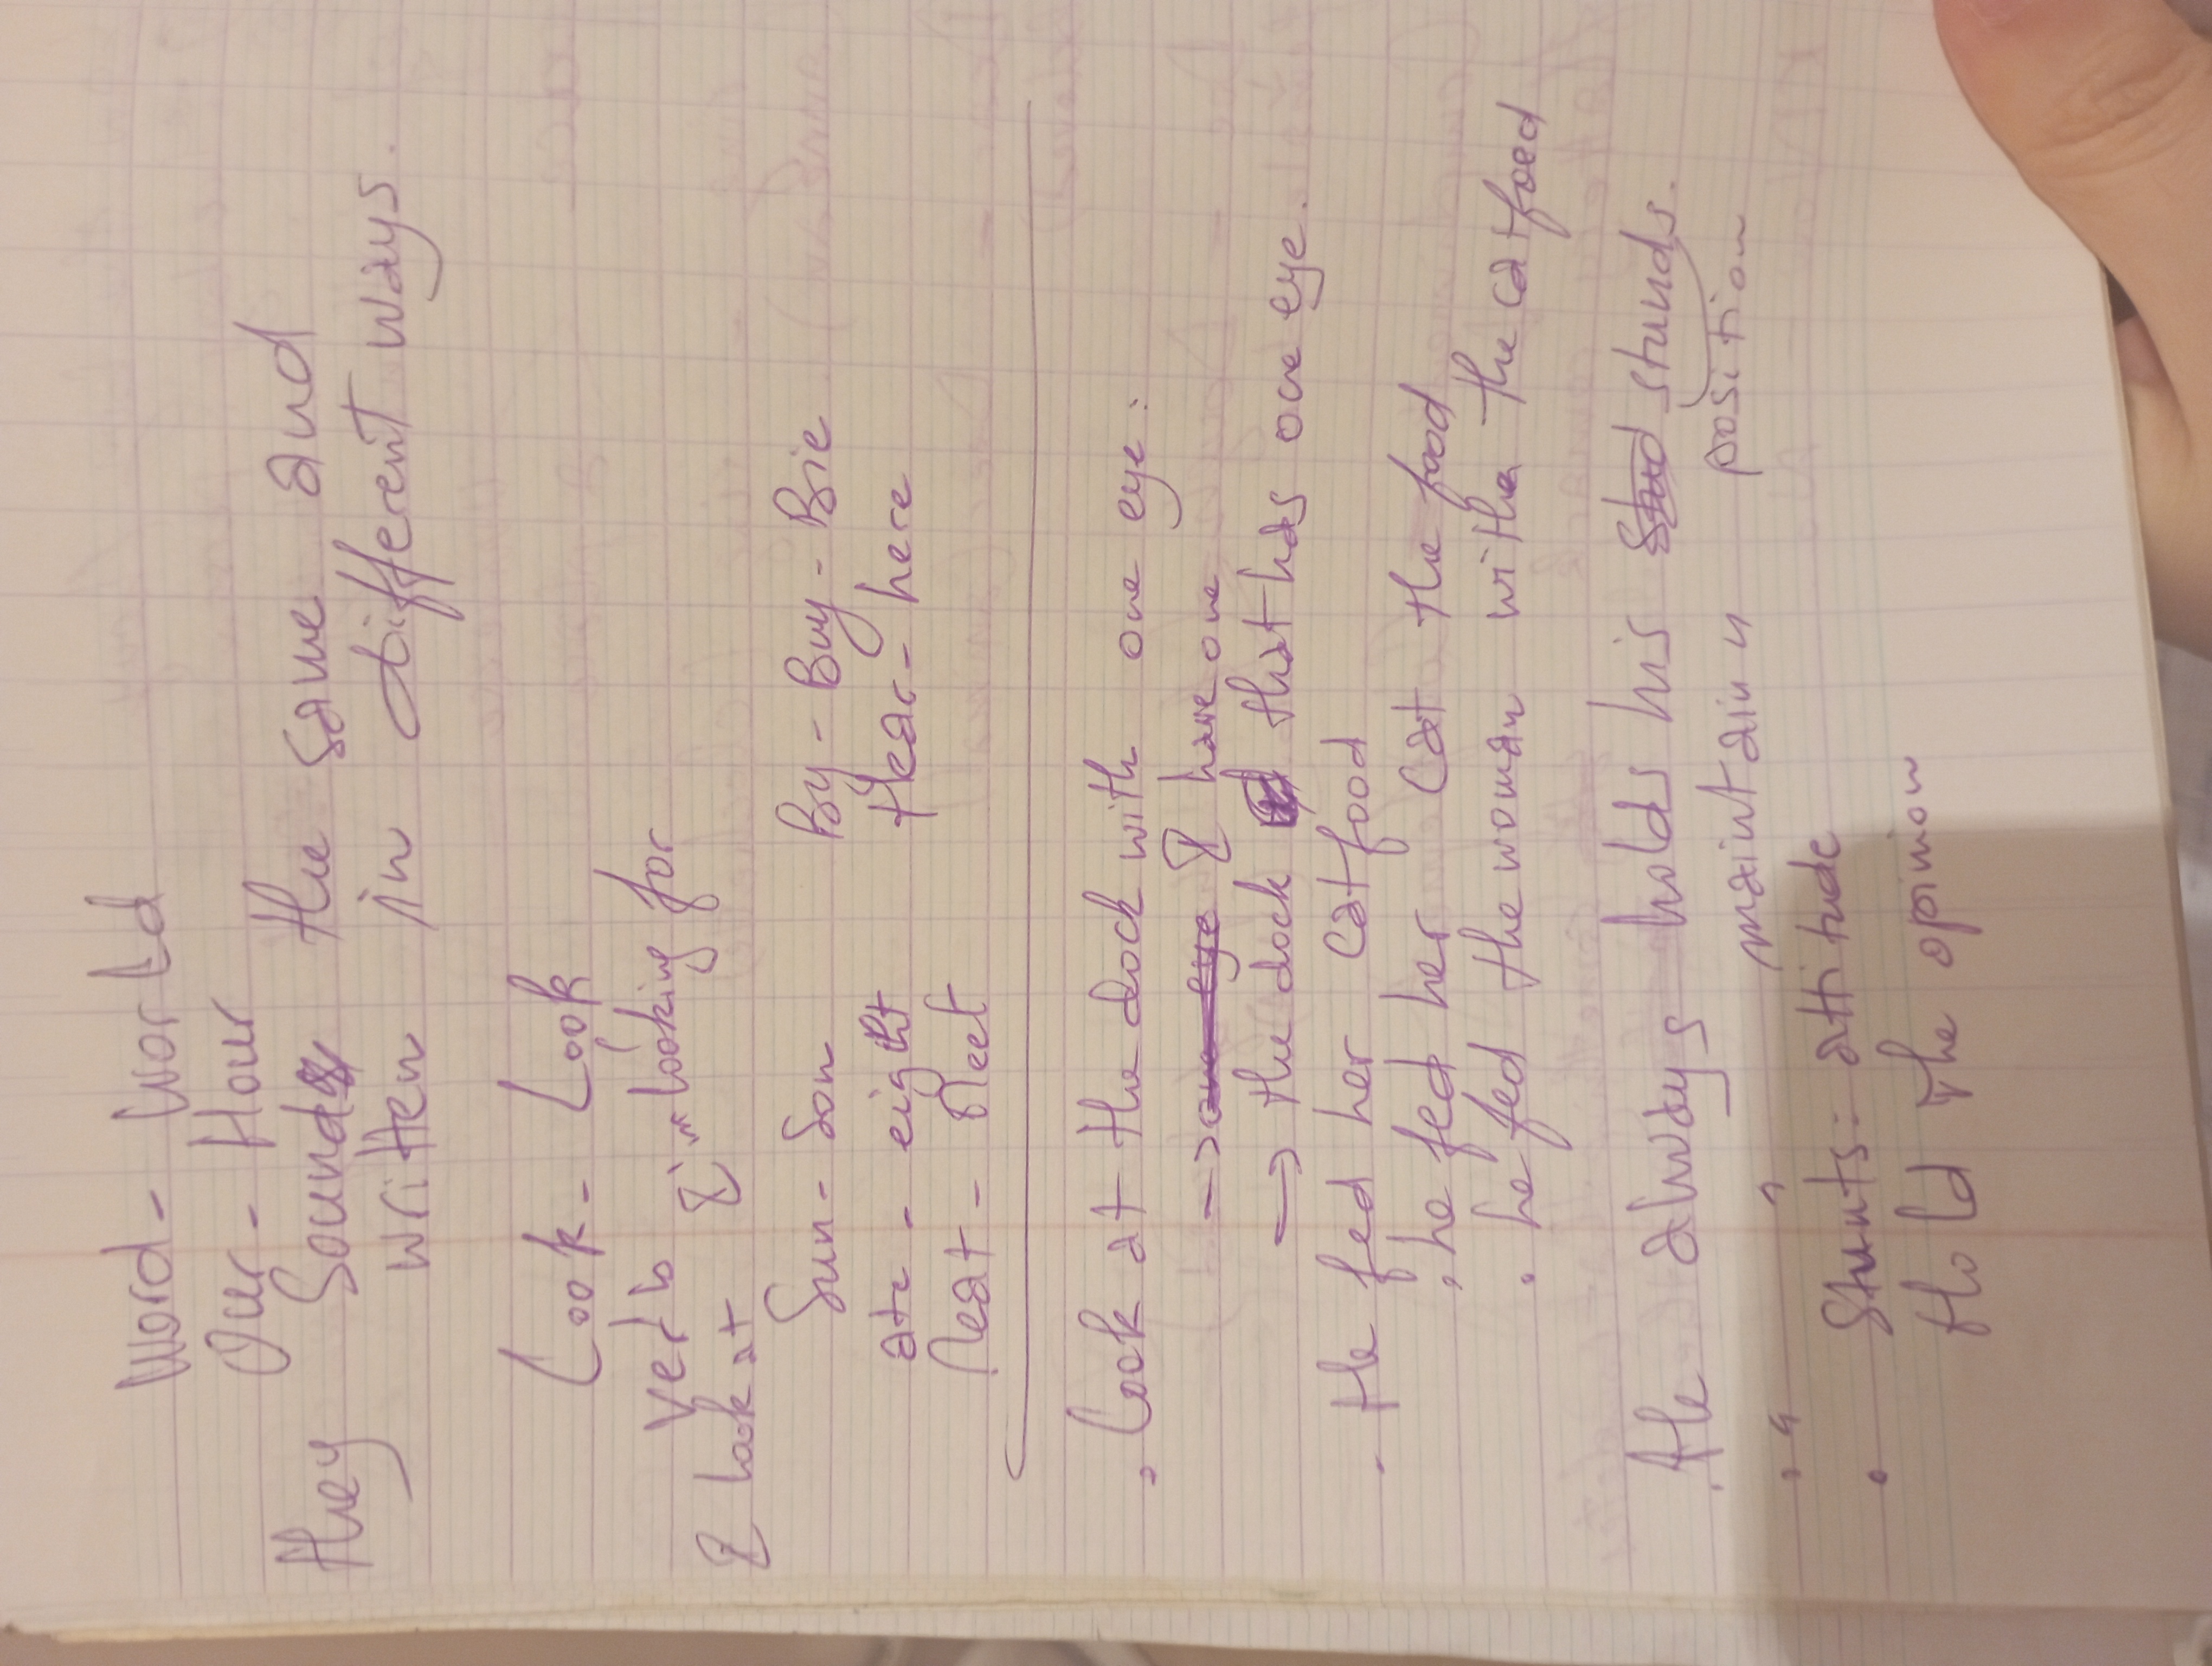 Word - World
Our - Hour
they Sound the same and
written in different ways.
Look - Look
verb I'm looking for
I look at
Sun - Son By - Buy - Bie
ate - eight Hear - here
Meat - Meet
. Look at the dock with one eye :
-> one eye I have one
-> the dock that has one eye.
- He fed her catfood
. he fed her cat the food
. he fed the woman with the catfood
. He always holds his stud stunds.
. " " maintain " position
. Stunts = attitude
Hold the opinion